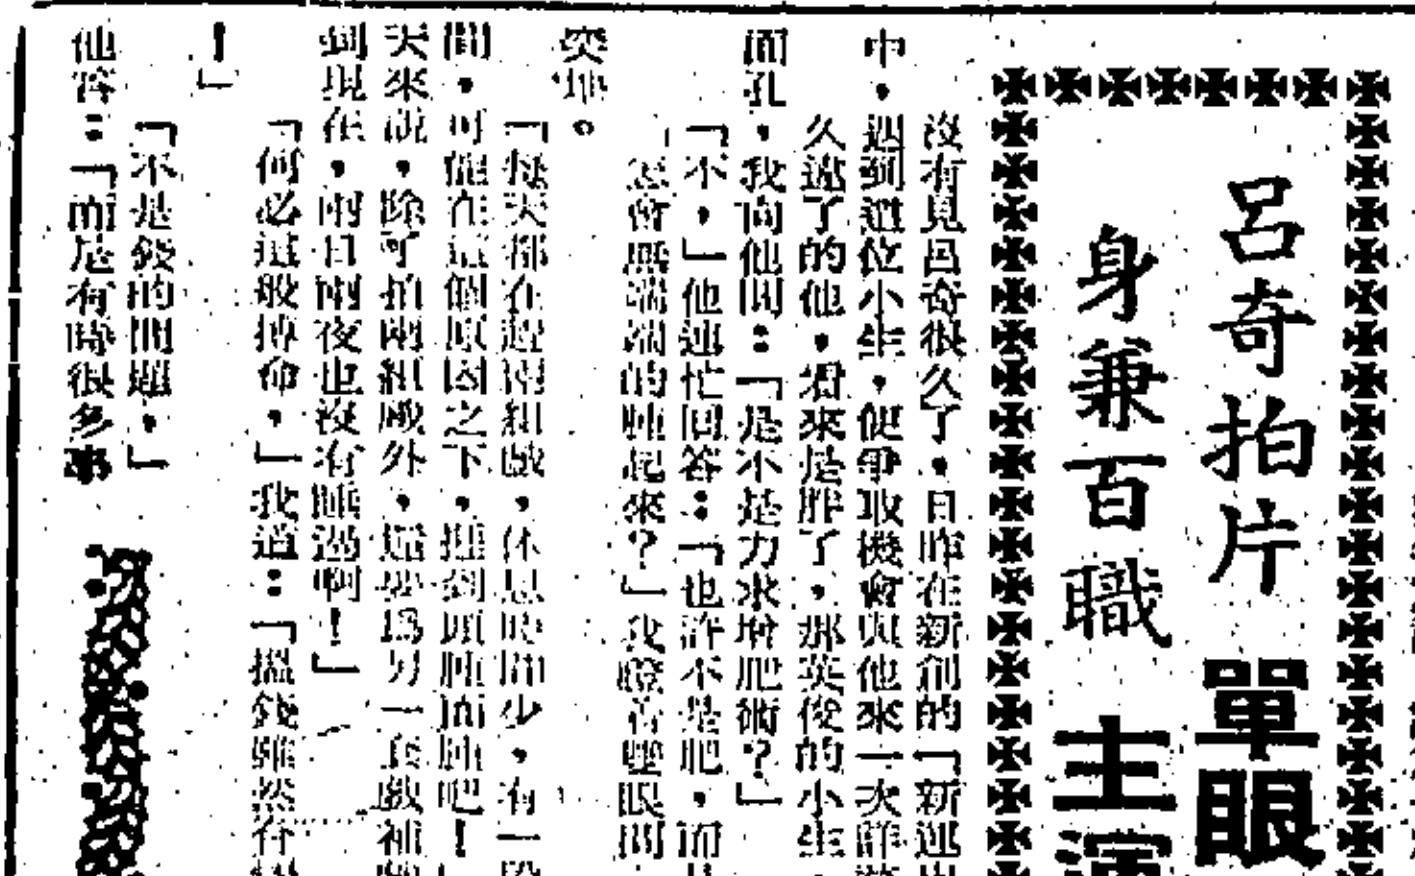 呂奇拍片 單眼
身兼百職 主演
沒有見呂奇很久了，日昨在新創的「新運
中，遇到這位小生，便爭取機會與他來一次詳
久違了的他，看來是胖了，那英俊的小生
面孔，我向他問：「是不是力求增肥術？」
「不，」他連忙回答：「也許不是肥，而
怎會無端端的腫起來？」我瞪着雙眼問
突地。
「每天都在趕兩組戲，休息時間少，有一
間，可能在這個原因之下，捱到頭腫面腫吧！
天來說，除了拍兩組戲外，還要為另一套戲補
到現在，兩日兩夜也沒有睡過啊！」
「何必這般搏命，」我道：「搵錢雖然
！」
「不是錢的問題，」
他答：「而是有時很多事